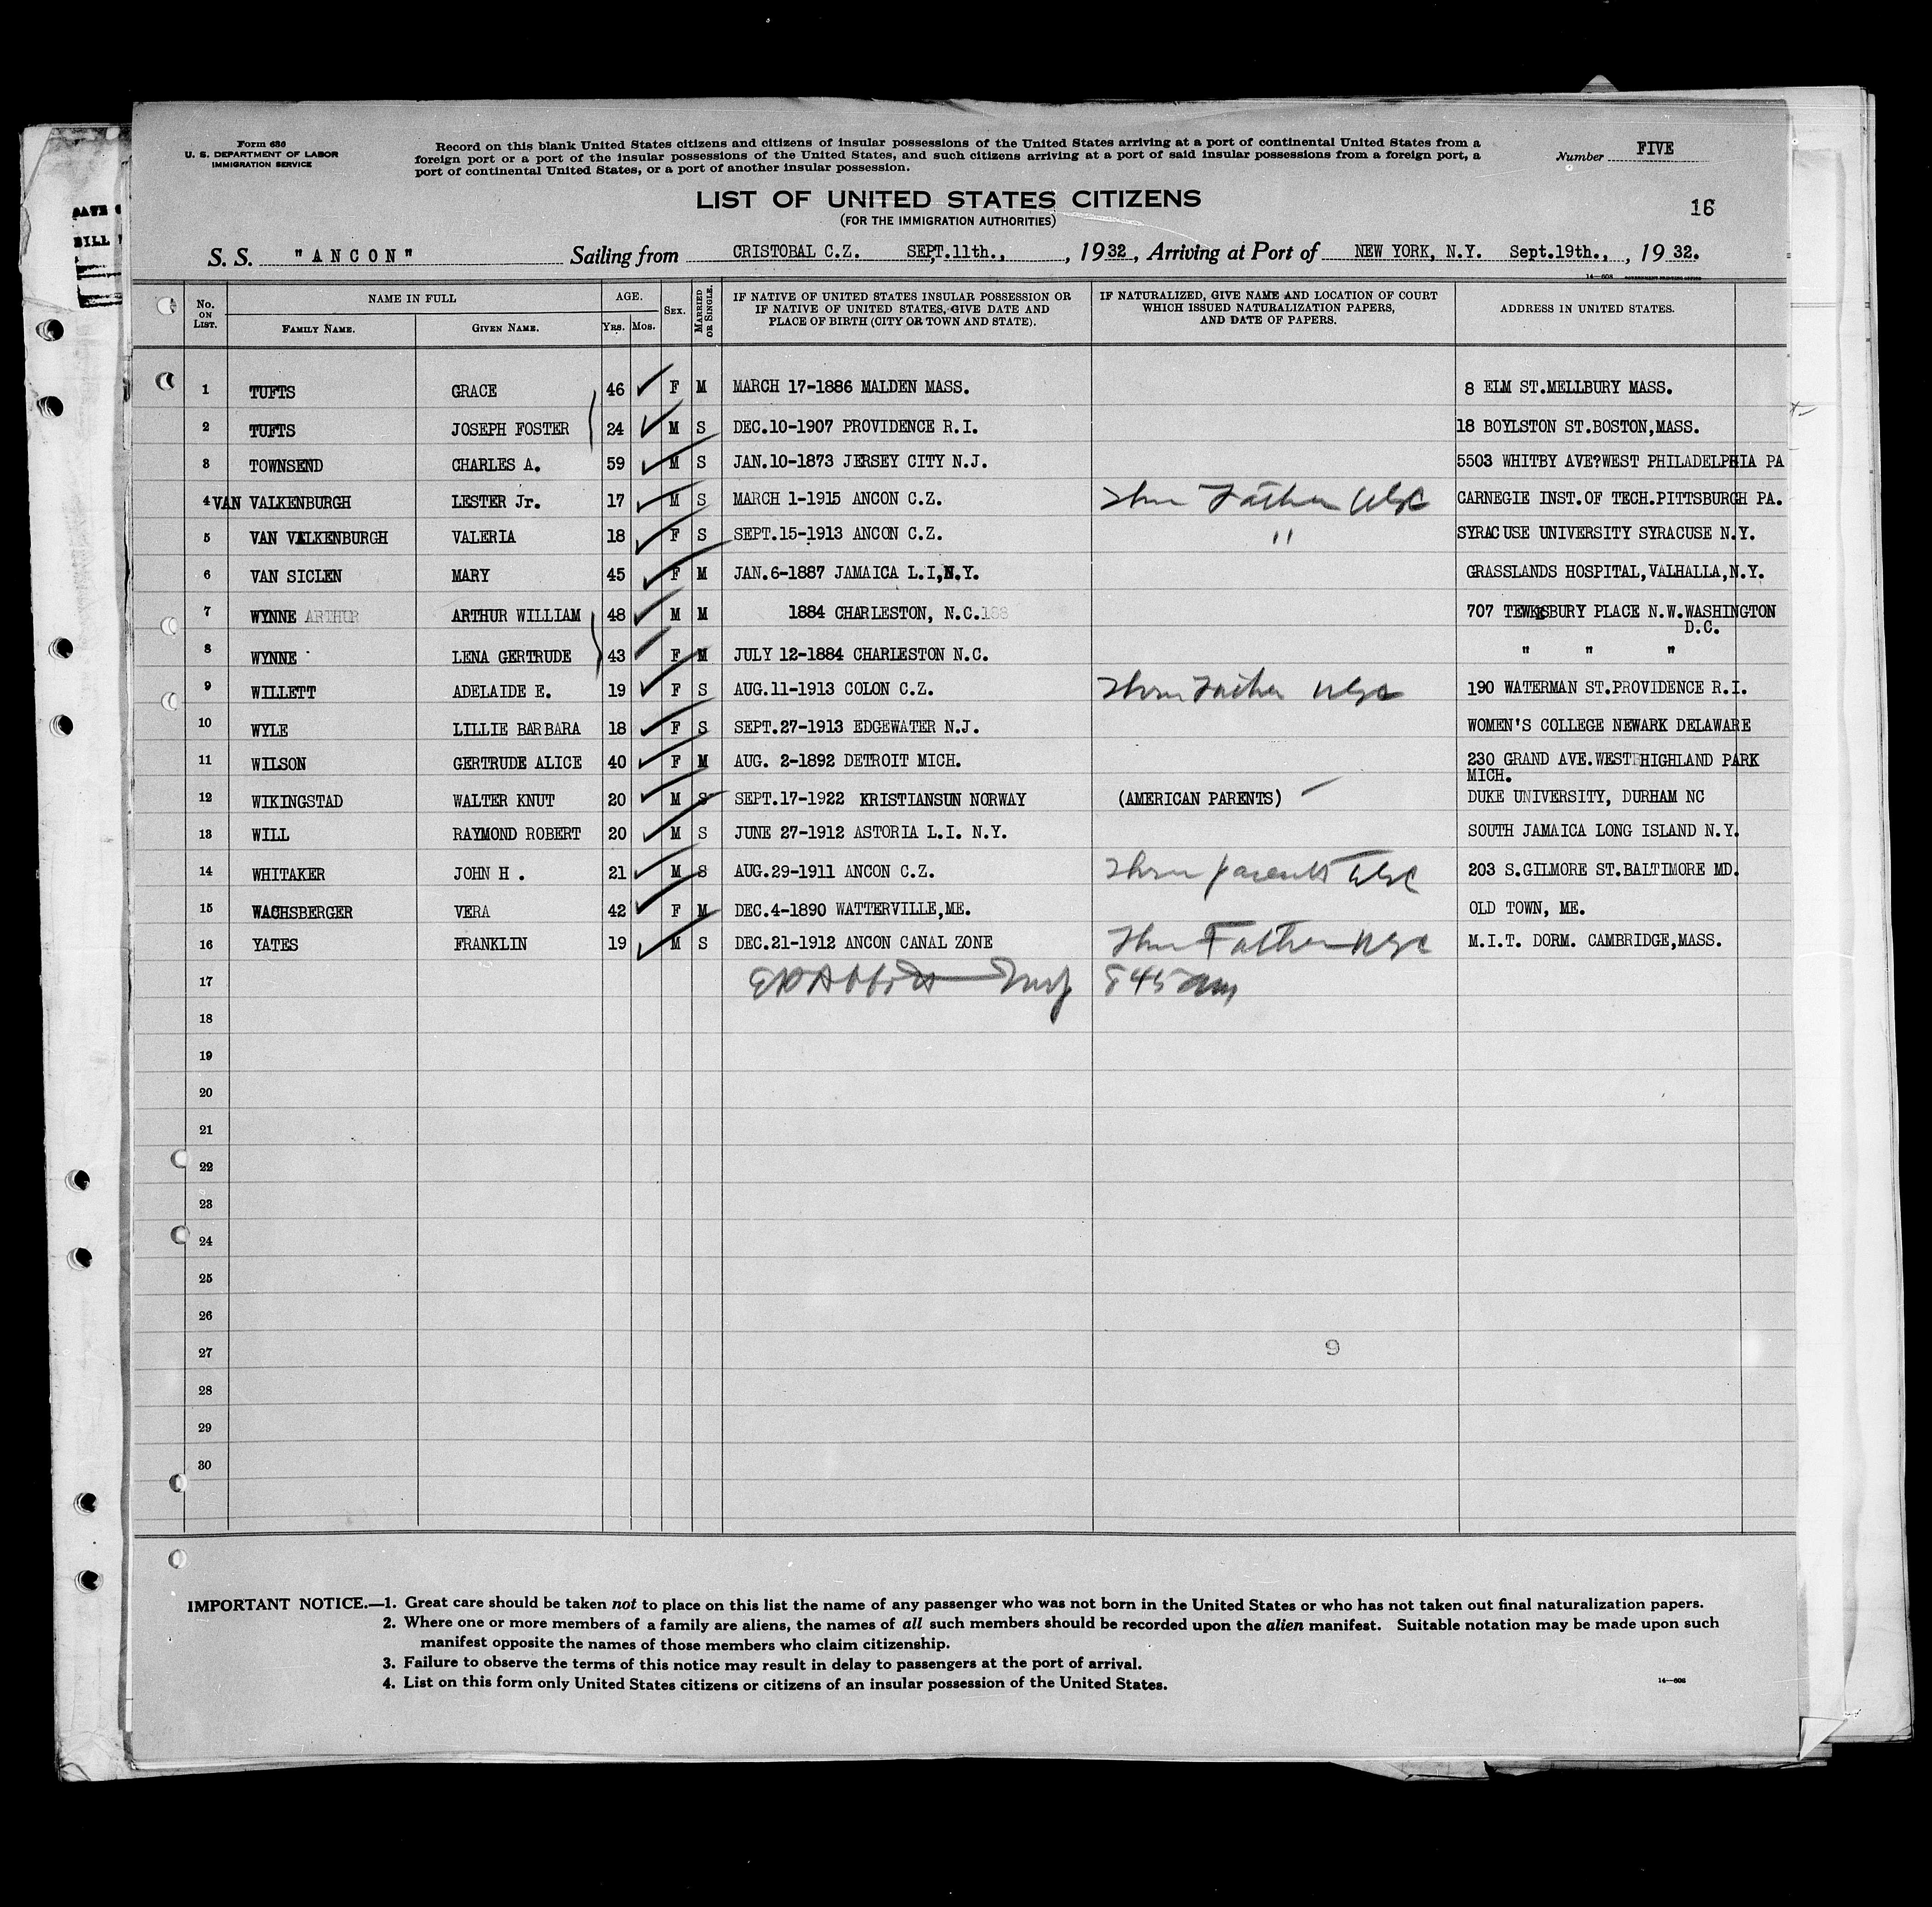 Form 630
U. S. DEPARTMENT OF LABOR
IMMIGRATION SERVICE
Record on this blank United States citizens and citizens of insular possessions of the United States arriving at a port of continental United States from a
foreign port or a port of the insular possessions of the United States, and such citizens arriving at a port of said insular possessions from a foreign port, a
port of continental United States, or a port of another insular possession.
Number FIVE
LIST OF UNITED STATES CITIZENS
(FOR THE IMMIGRATION AUTHORITIES)
16
S. S. "ANCON" Sailing from CRISTOBAL C.Z. SEPT.11th., , 1932, Arriving at Port of NEW YORK, N.Y. Sept.19th., , 1932.
No. ON LIST. NAME IN FULL FAMILY NAME. GIVEN NAME. AGE. YRS. MOS. SEX. MARRIED OR SINGLE. IF NATIVE OF UNITED STATES INSULAR POSSESSION OR IF NATIVE OF UNITED STATES, GIVE DATE AND PLACE OF BIRTH (CITY OR TOWN AND STATE). IF NATURALIZED, GIVE NAME AND LOCATION OF COURT WHICH ISSUED NATURALIZATION PAPERS, AND DATE OF PAPERS. ADDRESS IN UNITED STATES.
1 TUFTS GRACE 46 F M MARCH 17-1886 MALDEN MASS. 8 ELM ST.MELLBURY MASS.
2 TUFTS JOSEPH FOSTER 24 M S DEC.10-1907 PROVIDENCE R.I. 18 BOYLSTON ST.BOSTON,MASS.
3 TOWNSEND CHARLES A. 59 M S JAN.10-1873 JERSEY CITY N.J. 5503 WHITBY AVE?WEST PHILADELPHIA PA
4 VAN VALKENBURGH LESTER Jr. 17 M S MARCH 1-1915 ANCON C.Z. Thru Father USC CARNEGIE INST.OF TECH.PITTSBURGH PA.
5 VAN VALKENBURGH VALERIA 18 F S SEPT.15-1913 ANCON C.Z. " SYRACUSE UNIVERSITY SYRACUSE N.Y.
6 VAN SICLEN MARY 45 F M JAN.6-1887 JAMAICA L.I,N.Y. GRASSLANDS HOSPITAL,VALHALLA,N.Y.
7 WYNNE ARTHUR ARTHUR WILLIAM 48 M M 1884 CHARLESTON, N.C.188 707 TEWKSBURY PLACE N.W.WASHINGTON
D.C.
8 WYNNE LENA GERTRUDE 43 F M JULY 12-1884 CHARLESTON N.C. " " "
9 WILLETT ADELAIDE E. 19 F S AUG.11-1913 COLON C.Z. Thru Father USC 190 WATERMAN ST.PROVIDENCE R.I.
10 WYLE LILLIE BARBARA 18 F S SEPT.27-1913 EDGEWATER N.J. WOMEN'S COLLEGE NEWARK DELAWARE
11 WILSON GERTRUDE ALICE 40 F M AUG. 2-1892 DETROIT MICH. 230 GRAND AVE.WEST HIGHLAND PARK
MICH.
12 WIKINGSTAD WALTER KNUT 20 M S SEPT.17-1922 KRISTIANSUN NORWAY (AMERICAN PARENTS) DUKE UNIVERSITY, DURHAM NC
13 WILL RAYMOND ROBERT 20 M S JUNE 27-1912 ASTORIA L.I. N.Y. SOUTH JAMAICA LONG ISLAND N.Y.
14 WHITAKER JOHN H . 21 M S AUG.29-1911 ANCON C.Z. Thru parents USC 203 S.GILMORE ST.BALTIMORE MD.
15 WACHSBERGER VERA 42 F M DEC.4-1890 WATTERVILLE,ME. OLD TOWN, ME.
16 YATES FRANKLIN 19 M S DEC.21-1912 ANCON CANAL ZONE Thru Father USC M.I.T. DORM. CAMBRIDGE,MASS.
17 Insp 845 am
18
19
20
21
22
23
24
25
26
27 9
28
29
30
IMPORTANT NOTICE.—1. Great care should be taken not to place on this list the name of any passenger who was not born in the United States or who has not taken out final naturalization papers.
2. Where one or more members of a family are aliens, the names of all such members should be recorded upon the alien manifest. Suitable notation may be made upon such
manifest opposite the names of those members who claim citizenship.
3. Failure to observe the terms of this notice may result in delay to passengers at the port of arrival.
4. List on this form only United States citizens or citizens of an insular possession of the United States.
14—608